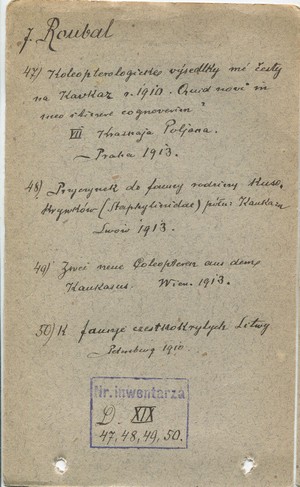 "J. Roubal
47) Koleopterologické výsledky mé cesty
na Kavkaz r. 1910. Quid novi in
meo itinere cognoverim"
VII Krasnaja Poljana.
– Praha 1913.
48) Przyczynek do fauny rodziny Kuso-
krywków (Staphylinidae) półn. Kaukazu
Lwów 1913.
49) Zwei neue Coleopteren aus dem
Kaukasus. Wien. 1913.
50) K faunje czestkokrylych Litwy
– Petersburg 1910.
Nr. inwentarza
D. XIX
47, 48, 49, 50.